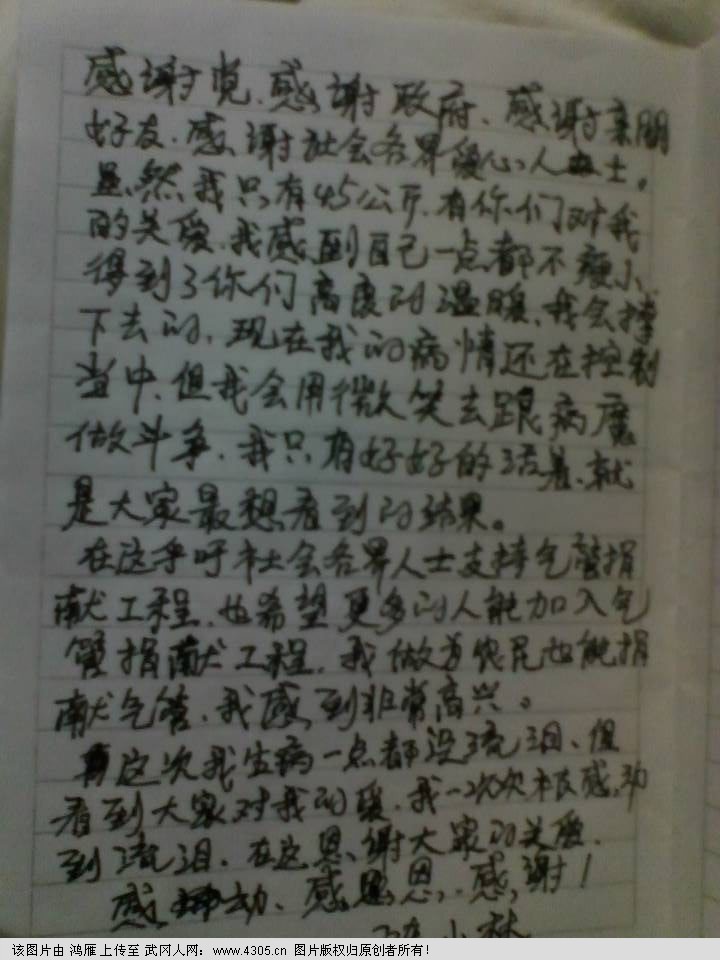 感谢党、感谢政府、感谢亲朋
好友、感谢社会各界暖心人士。
虽然我只有45公斤、有你们对我
的关爱、我感到自己一点都不瘦小、
得到了你们高度的温暖、我会撑
下去的、现在我的病情还在控制
当中、但我会用微笑去跟病魔
做斗争、我只有好好的活着、就
是大家最想看到的结果。
在这乎吁社会各界人士支持气管捐
献工程、也希望更多的人能加入气
管捐献工程、我做为农民也能捐
献气管、我感到非常高兴。
这次我生病一点都没流泪、但
看到大家对我的爱、我一次次被感动
到流泪、在这恩谢大家的关爱、
感动、感恩、感谢!
小林
该图片由 鸿雁 上传至 武冈人网：www.4305.cn 图片版权归原创者所有！